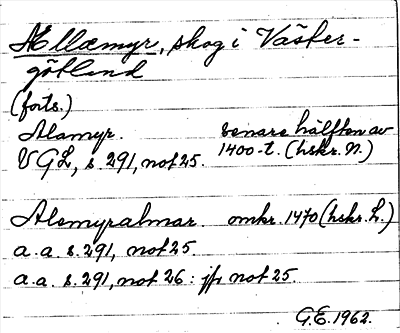 Ællæmyr, skog i Väster-
götland
(forts.)
Alamyr. senare hälften av
VGL, s. 291, not 25. 1400-t. (hskr. N.)
Alsmyralmar. omkr. 1470 (hskr. L.)
a.a. s. 291, not 25
a.a. s. 291, not 26: jfr not 25.
G.E. 1962.